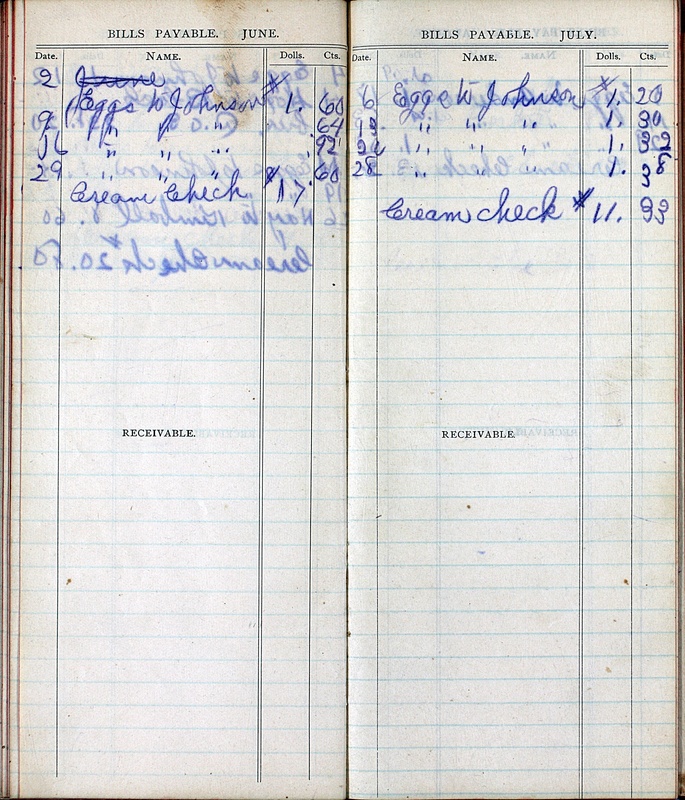 BILLS PAYABLE. JUNE.
Date. NAME. Dolls. Cts.
2 June
Eggs W Johnson $1. 60
9 " " " .64
16 " " " .92
29 " " " .60
Cream Check $17.
RECEIVABLE.
BILLS PAYABLE. JULY.
Date. NAME. Dolls. Cts.
6 Eggs W Johnson $1. 20
13 " " " 1. 30
" " " 1. 32
28 " " " 1. 38
Cream check $11. 93
RECEIVABLE.